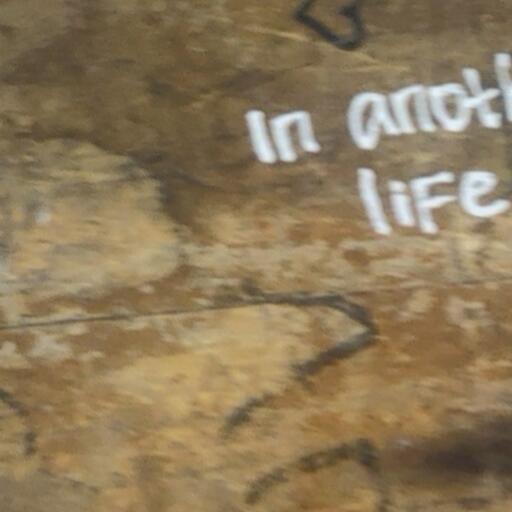 In anoth
life